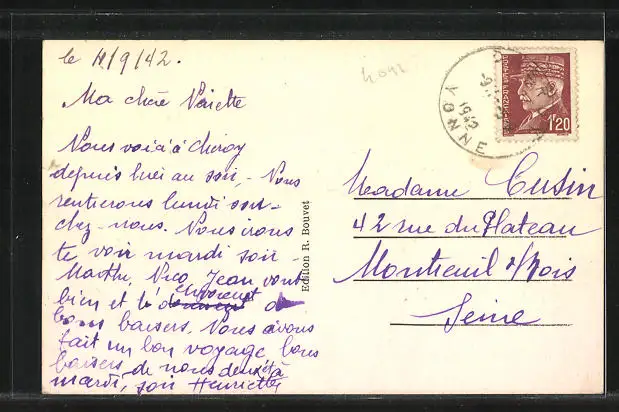 le 11/9/42.
Ma chère
Nous voici à Cheroy
depuis hier au soir, - Nous
rentrerons lundi soir
chez-nous. Nous irons
te voir mardi soir
Marthe, Nico, Jean vont
bien et t'envoient de
bons baisers. Nous avons
fait un bon voyage bons
baisers de nous deux et à
mardi, soir Henriette
Edition R. Bouvet
YONNE
1942
1'20
Madame Cusin
42 rue du Plateau
Montreuil s/Bois
Seine